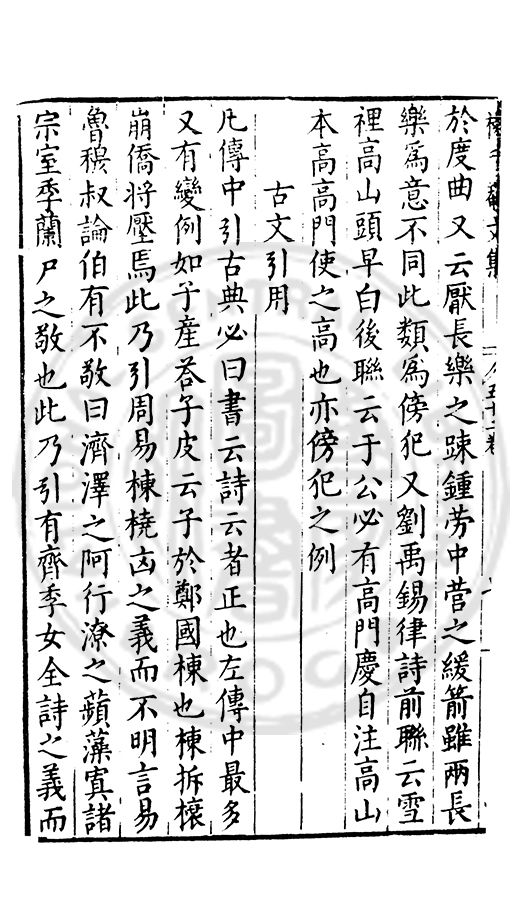 於度曲又云厭長樂之踈鍾勞中營之緩箭雖兩長
樂爲意不同此類爲傍犯又劉禹錫律詩前聯云雪
裡高山頭早白後聯云于公必有高門慶自注高山
本高高門使之高也亦傍犯之例
古文引用
凡傳中引古典必曰書云詩云者正也左傳中最多
又有變例如子產荅子皮云子於鄭國棟也棟拆榱
崩僑將壓焉此乃引周易棟橈凶之義而不明言易
魯穆叔論伯有不敬曰濟澤之阿行潦之蘋藻寘諸
宗室季蘭尸之敬也此乃引有齊季女全詩之義而